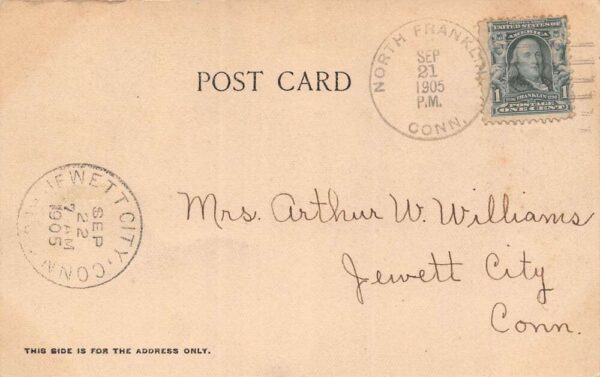 NORTH FRANKLIN
SEP
21
1905
P.M.
CONN.
UNITED STATES OF
AMERICA
1 FRANKLIN 1
POSTAGE
ONE CENT
POST CARD
JEWETT CITY, CONN
SEP
22
7 AM
1905
Mrs. Arthur W. Williams
Jewett City
Conn.
THIS SIDE IS FOR THE ADDRESS ONLY.